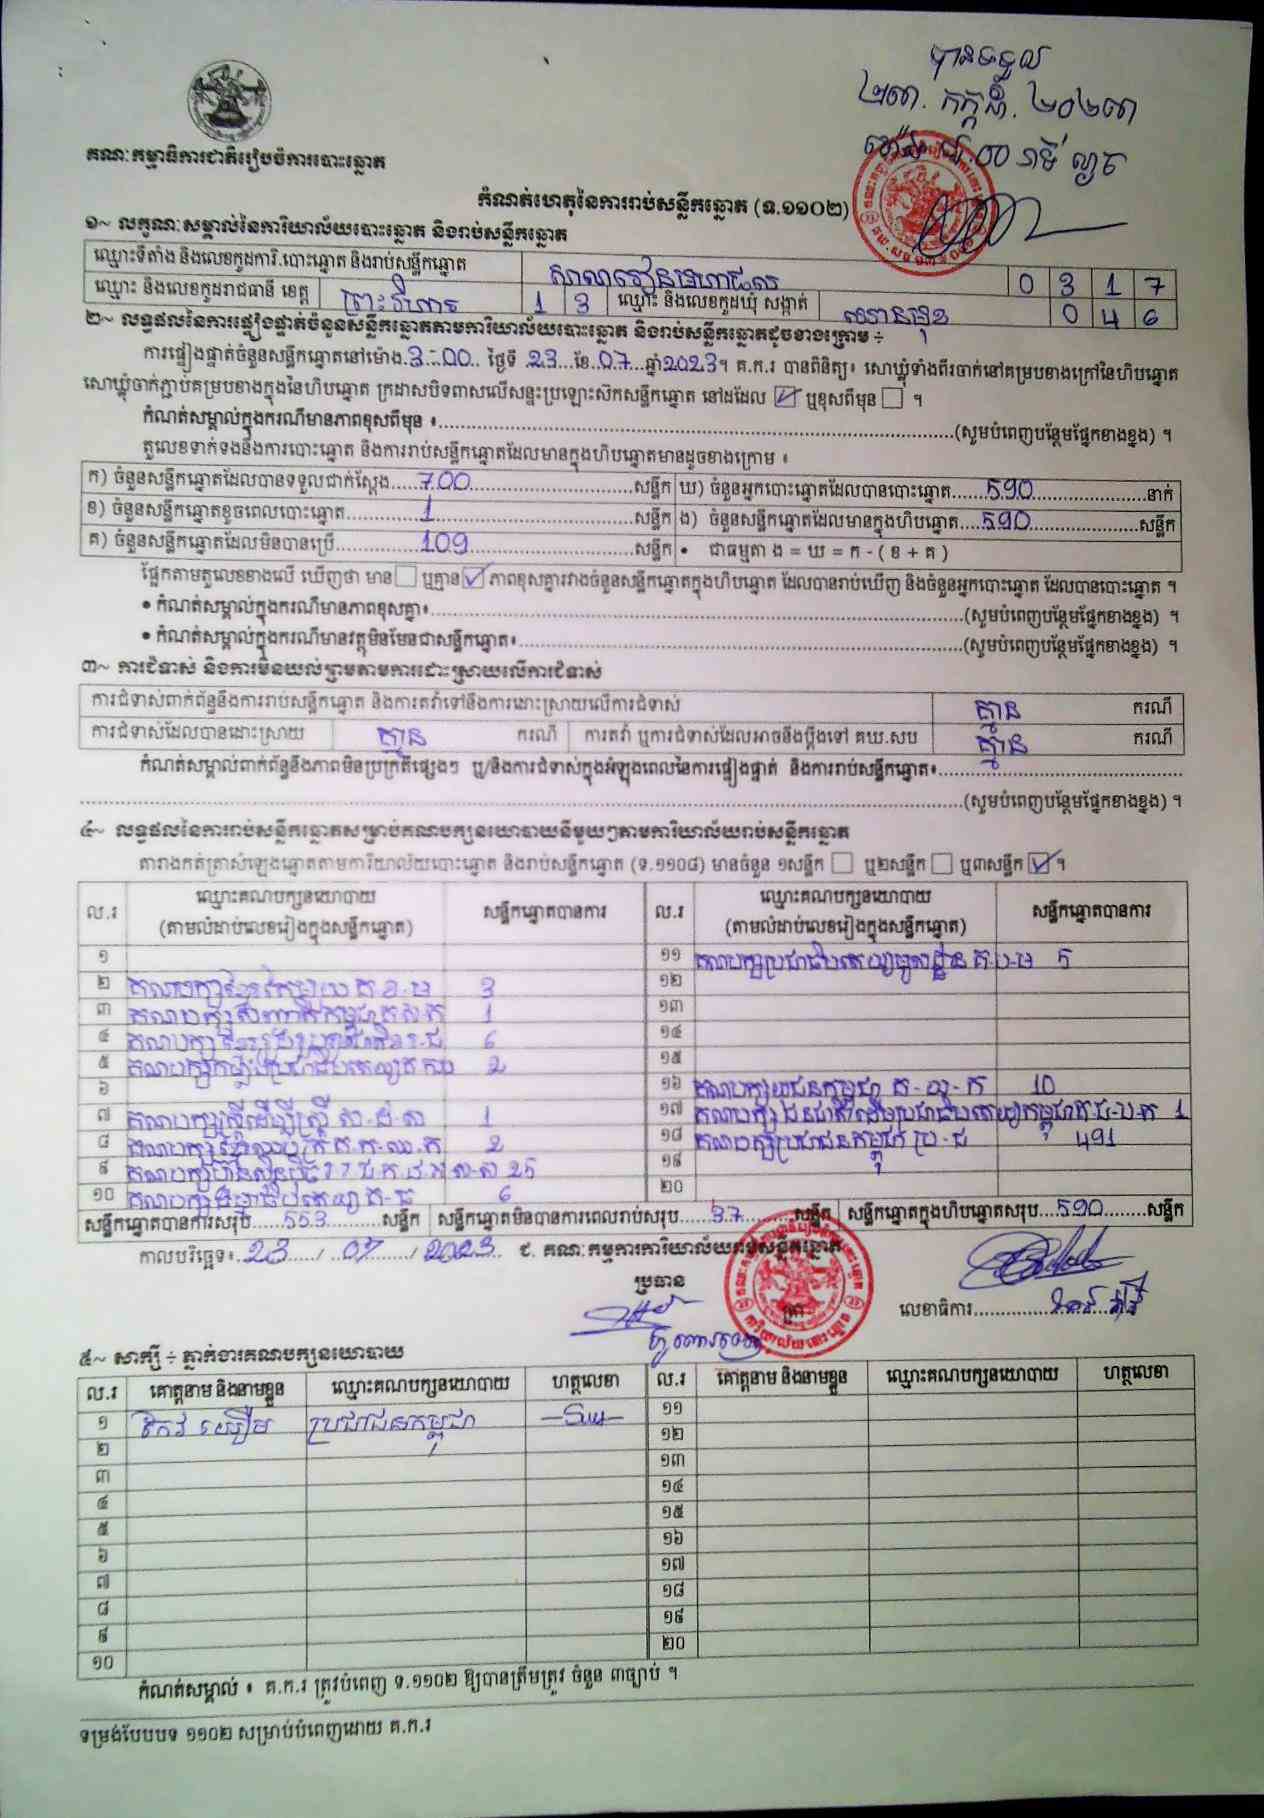 បានទទួល
២៣. កក្កដា. ២០២៣
គណៈកម្មាធិការជាតិរៀបចំការបោះឆ្នោត
កំណត់ហេតុនៃការរាប់សន្លឹកឆ្នោត (ទ.១១០២)
១~ លក្ខណៈសម្គាល់នៃការិយាល័យបោះឆ្នោត និងរាប់សន្លឹកឆ្នោត
ឈ្មោះទីតាំង និងលេខកូដការិ.បោះឆ្នោត និងរាប់សន្លឹកឆ្នោត 0 3 1 7
ឈ្មោះ និងលេខកូដរាជធានី ខេត្ត ព្រះវិហារ 1 3 ឈ្មោះ និងលេខកូដឃុំ សង្កាត់ 0 4 6
២~ លទ្ធផលនៃការផ្ទៀងផ្ទាត់ចំនួនសន្លឹកឆ្នោតតាមការិយាល័យបោះឆ្នោត និងរាប់សន្លឹកឆ្នោតដូចខាងក្រោម ÷
ការផ្ទៀងផ្ទាត់ចំនួនសន្លឹកឆ្នោតនៅម៉ោង.3:00.. ថ្ងៃទី .23...ខែ.07....ឆ្នាំ2023។ គ.ក.រ បានពិនិត្យ៖ សោឃ្លុំទាំងពីរចាក់នៅគម្របខាងក្រៅនៃហិបឆ្នោត
សោឃ្លុំចាក់ភ្ជាប់គម្របខាងក្នុងនៃហិបឆ្នោត ក្រដាសបិទពាសលើសន្ទះប្រឡោះស៊កសន្លឹកឆ្នោត នៅដដែល ☑ ឬខុសពីមុន ☐ ។
កំណត់សម្គាល់ក្នុងករណីមានភាពខុសពីមុន ៖........(សូមបំពេញបន្ថែមផ្នែកខាងខ្នង) ។
តួលេខទាក់ទងនឹងការបោះឆ្នោត និងការរាប់សន្លឹកឆ្នោតដែលមានក្នុងហិបឆ្នោតមានដូចខាងក្រោម ៖
ក) ចំនួនសន្លឹកឆ្នោតដែលបានទទួលជាក់ស្តែង.....700........សន្លឹក ឃ) ចំនួនអ្នកបោះឆ្នោតដែលបានបោះឆ្នោត.......590........នាក់
ខ) ចំនួនសន្លឹកឆ្នោតខូចពេលបោះឆ្នោត........1........សន្លឹក ង) ចំនួនសន្លឹកឆ្នោតដែលមានក្នុងហិបឆ្នោត....590........សន្លឹក
គ) ចំនួនសន្លឹកឆ្នោតដែលមិនបានប្រើ........109........សន្លឹក • ជាធម្មតា ង = ឃ = ក - ( ខ + គ )
ផ្អែកតាមតួលេខខាងលើ ឃើញថា មាន☐ ឬគ្មាន☑ ភាពខុសគ្នារវាងចំនួនសន្លឹកឆ្នោតក្នុងហិបឆ្នោត ដែលបានរាប់ឃើញ និងចំនួនអ្នកបោះឆ្នោត ដែលបានបោះឆ្នោត ។
• កំណត់សម្គាល់ក្នុងករណីមានភាពខុសគ្នា៖........(សូមបំពេញបន្ថែមផ្នែកខាងខ្នង) ។
• កំណត់សម្គាល់ក្នុងករណីមានវត្ថុមិនមែនជាសន្លឹកឆ្នោត៖........(សូមបំពេញបន្ថែមផ្នែកខាងខ្នង) ។
៣~ ការជំទាស់ និងការមិនយល់ព្រមតាមការដោះស្រាយលើការជំទាស់
ការជំទាស់ពាក់ព័ន្ធនឹងការរាប់សន្លឹកឆ្នោត និងការតវ៉ាទៅនឹងការដោះស្រាយលើការជំទាស់ គ្មាន ករណី
ការជំទាស់ដែលបានដោះស្រាយ គ្មាន ករណី ការតវ៉ា ឬការជំទាស់ដែលអាចនឹងប្តឹងទៅ គឃ.សប គ្មាន ករណី
កំណត់សម្គាល់ពាក់ព័ន្ធនឹងភាពមិនប្រក្រតីផ្សេងៗ ឬ/និងការជំទាស់ក្នុងអំឡុងពេលនៃការផ្ទៀងផ្ទាត់ និងការរាប់សន្លឹកឆ្នោត៖........
........(សូមបំពេញបន្ថែមផ្នែកខាងខ្នង) ។
៤~ លទ្ធផលនៃការរាប់សន្លឹកឆ្នោតសម្រាប់គណបក្សនយោបាយនីមួយៗតាមការិយាល័យរាប់សន្លឹកឆ្នោត
តារាងកត់ត្រាសំឡេងឆ្នោតតាមការិយាល័យបោះឆ្នោត និងរាប់សន្លឹកឆ្នោត (ទ.១១០៨) មានចំនួន ១សន្លឹក ☐ ឬ២សន្លឹក ☐ ឬ៣សន្លឹក ☑ ។
ល.រ ឈ្មោះគណបក្សនយោបាយ សន្លឹកឆ្នោតបានការ ល.រ ឈ្មោះគណបក្សនយោបាយ សន្លឹកឆ្នោតបានការ
(តាមលំដាប់លេខរៀងក្នុងសន្លឹកឆ្នោត) (តាមលំដាប់លេខរៀងក្នុងសន្លឹកឆ្នោត)
១ ១១ គណបក្សប្រជាធិបតេយ្យមូលដ្ឋាន គ.ប.ម 5
២ គណបក្សខ្មែរ គ.ខ.ម 3 ១២
៣ គណបក្ស 1 ១៣
៤ គណបក្ស 6 ១៤
៥ គណបក្សកម្លាំងប្រជាធិបតេយ្យ 2 ១៥
៦ ១៦ គណបក្សយុវជនកម្ពុជា គ-យ-ក 10
៧ គណបក្សស្ត្រីដើម្បីស្ត្រី ស-ដ-ស 1 ១៧ គណបក្សជនជាតិដើមប្រជាធិបតេយ្យកម្ពុជា គ.ជ-ប-ក 1
៨ គណបក្ស 2 ១៨ គណបក្សប្រជាជនកម្ពុជា ប្រ-ជ 491
៩ គណបក្សហ្វ៊ុនស៊ិនប៉ិច 25 ១៩
១០ គណបក្ស គ-ធ 6 ២០
សន្លឹកឆ្នោតបានការសរុប.....553..........សន្លឹក សន្លឹកឆ្នោតមិនបានការពេលរាប់សរុប......37.........សន្លឹក សន្លឹកឆ្នោតក្នុងហិបឆ្នោតសរុប...590........សន្លឹក
កាលបរិច្ឆេទ៖..23....../ ..07....../ 2023.. ជ. គណៈកម្មការការិយាល័យរាប់សន្លឹកឆ្នោត
ប្រធាន
ត្រា លេខាធិការ........
៥~ សាក្សី ÷ ភ្នាក់ងារគណបក្សនយោបាយ
ល.រ គោត្តនាម និងនាមខ្លួន ឈ្មោះគណបក្សនយោបាយ ហត្ថលេខា ល.រ គោត្តនាម និងនាមខ្លួន ឈ្មោះគណបក្សនយោបាយ ហត្ថលេខា
១ ប្រជាជនកម្ពុជា ១១
២ ១២
៣ ១៣
៤ ១៤
៥ ១៥
៦ ១៦
៧ ១៧
៨ ១៨
៩ ១៩
១០ ២០
កំណត់សម្គាល់ ៖ គ.ក.រ ត្រូវបំពេញ ទ.១១០២ ឱ្យបានត្រឹមត្រូវ ចំនួន ៣ច្បាប់ ។
ទម្រង់បែបបទ ១១០២ សម្រាប់បំពេញដោយ គ.ក.រ